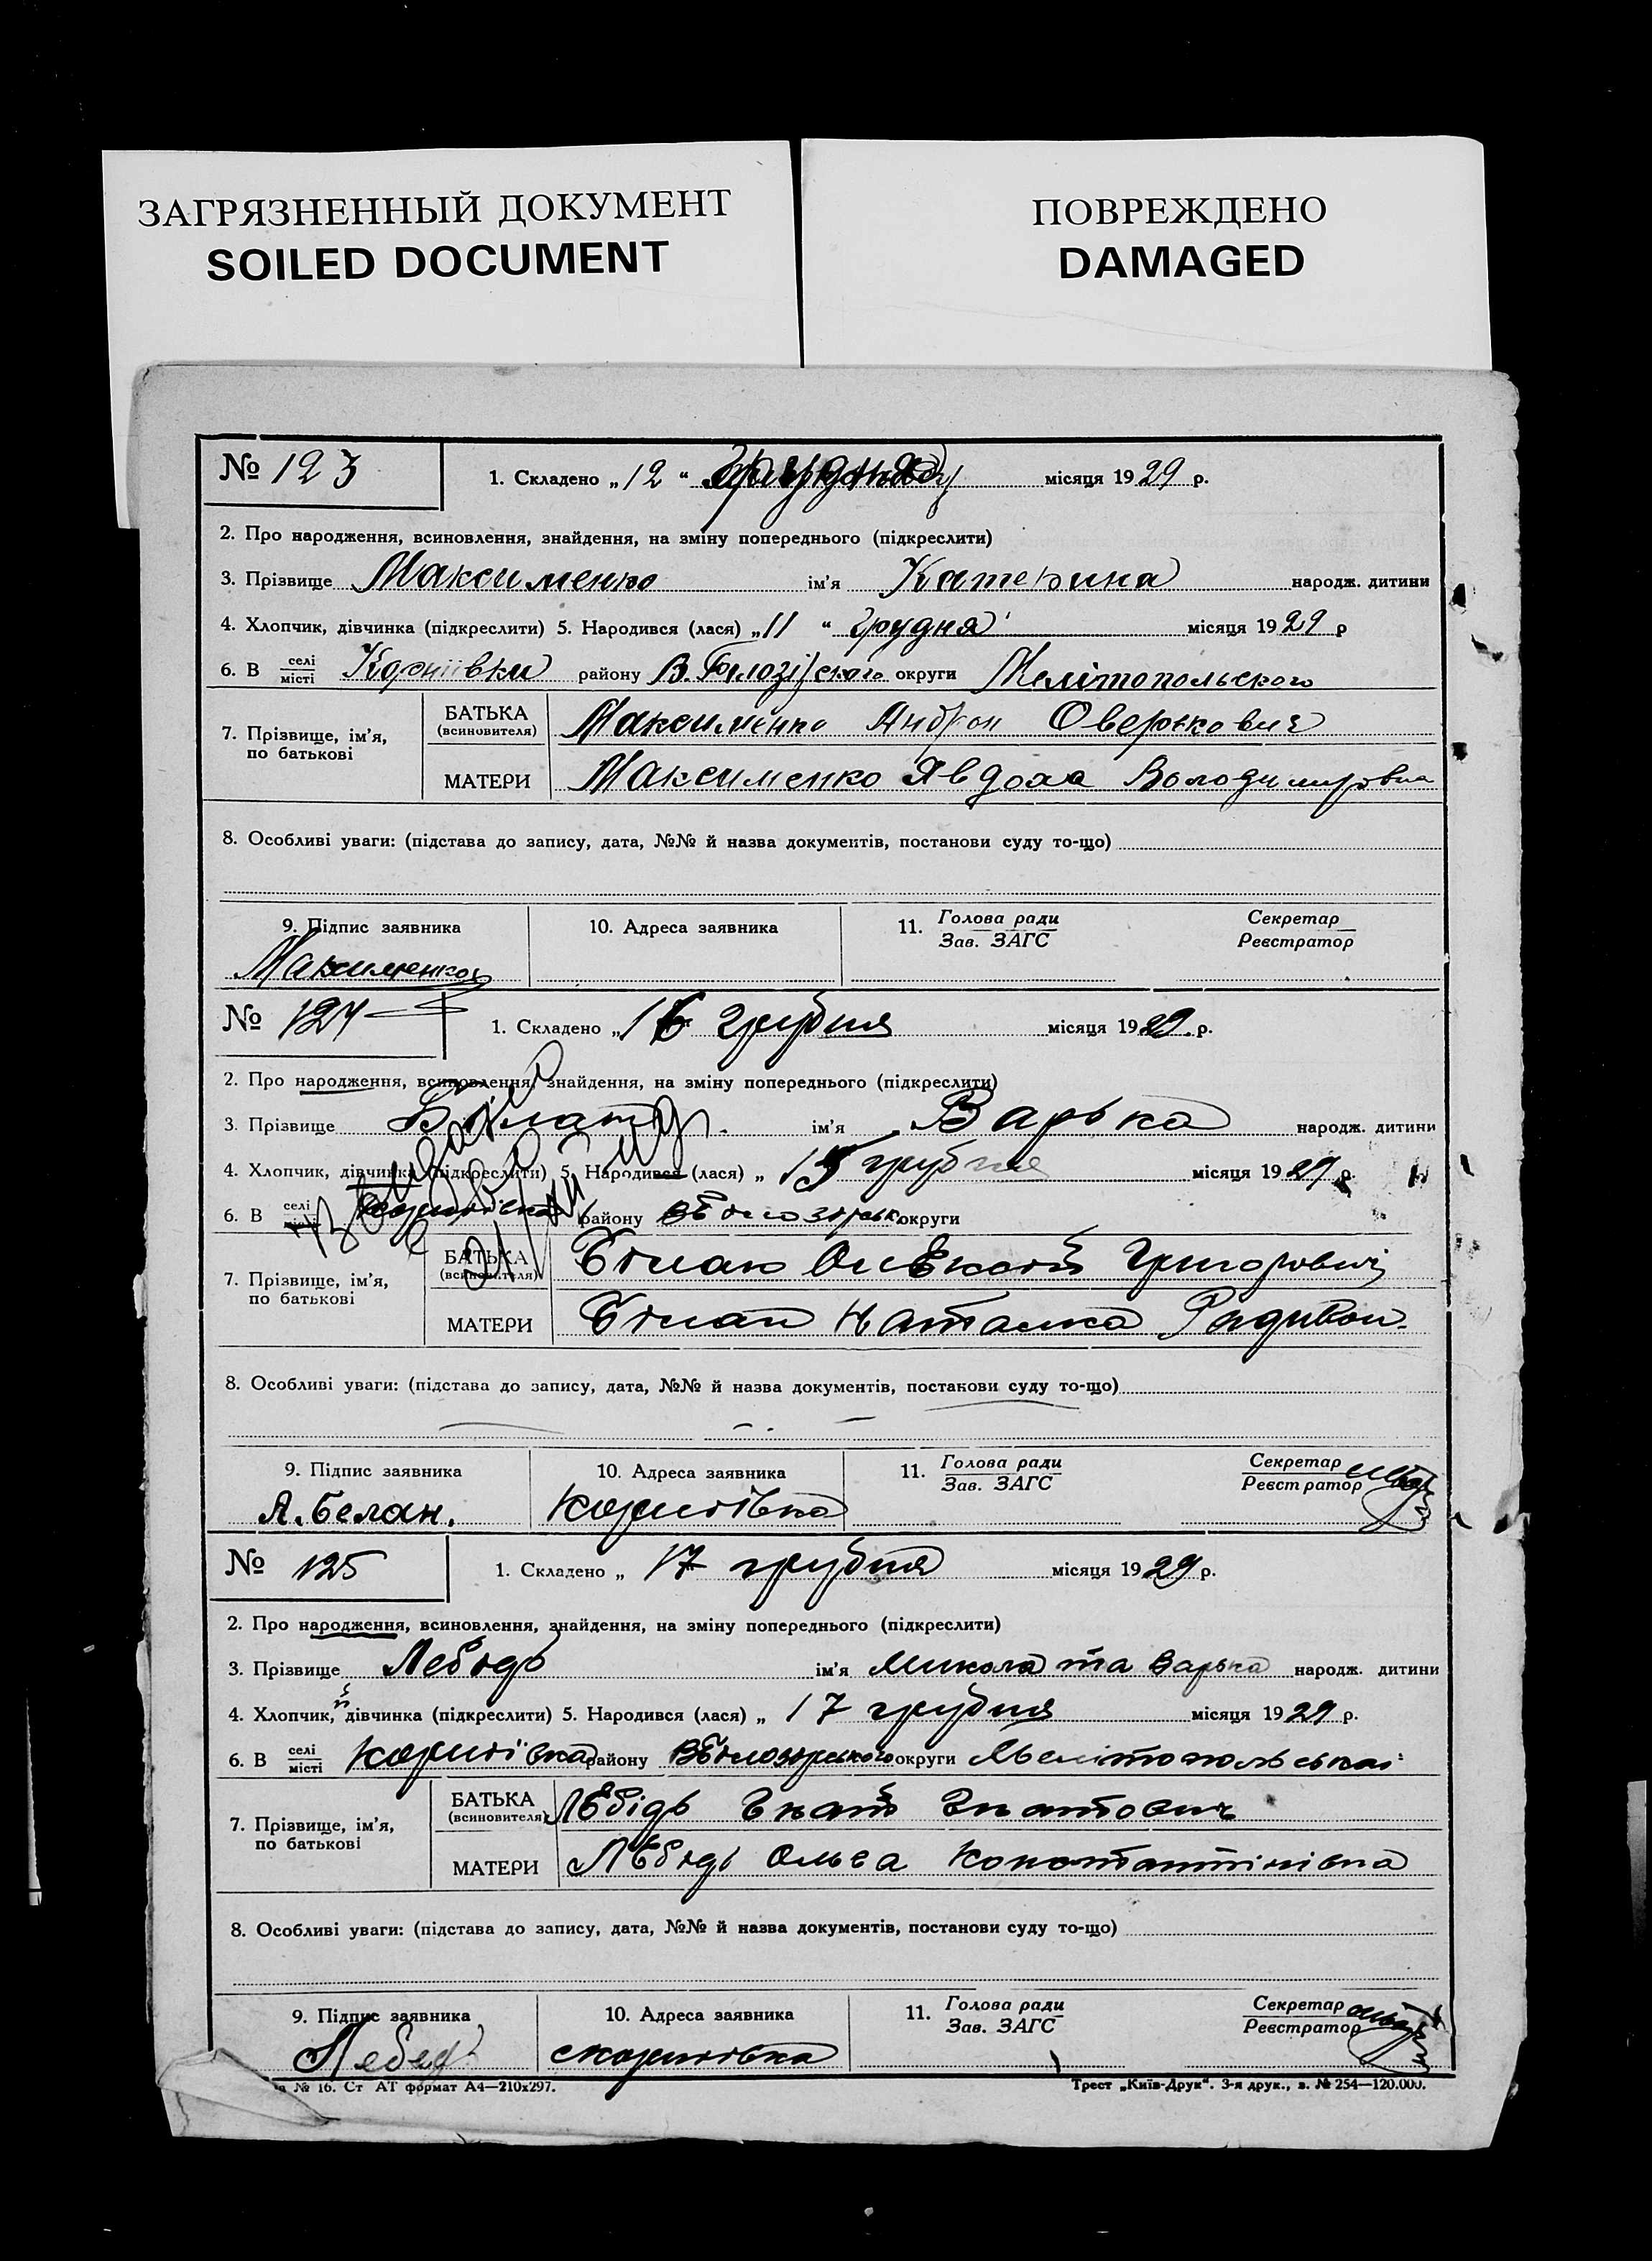 ЗАГРЯЗНЕННЫЙ ДОКУМЕНТ
SOILED DOCUMENT
ПОВРЕЖДЕНО
DAMAGED
№ 123
1. Складено „ 12 “ місяця 1929 р.
2. Про народження, всиновлення, знайдення, на зміну попереднього (підкреслити)
3. Прізвище Максименко ім’я Катерина народж. дитини
4. Хлопчик, дівчинка (підкреслити) 5. Народився (лася) „ 11 “ грудня місяця 1929 р
6. В селі місті району округи Мелітопольского
7. Прізвище, ім’я, по батькові
БАТЬКА (всиновителя) Максименко Андрон Оверькович
МАТЕРИ Максименко Явдоха Володимировна
8. Особливі уваги: (підстава до запису, дата, №№ й назва документів, постанови суду то-що)
9. Підпис заявника
10. Адреса заявника
11. Голова ради Зав. ЗАГС
Секретар Реєстратор
Максименко
№ 124
1. Складено „ 16 грудня місяця 1929 р.
2. Про народження, всиновлення, знайдення, на зміну попереднього (підкреслити)
3. Прізвище ім’я Варька народж. дитини
4. Хлопчик, дівчинка (підкреслити) 5. Народився (лася) „ 15 грудня місяця 1929 р.
6. В селі району округи
7. Прізвище, ім’я, по батькові
БАТЬКА (всиновителя) Білан Олексій Григорович
МАТЕРИ Білан Наталка Радивон.
8. Особливі уваги: (підстава до запису, дата, №№ й назва документів, постанови суду то-що)
9. Підпис заявника
10. Адреса заявника
11. Голова ради Зав. ЗАГС
Секретар Реєстратор
А. Белан. Корніївка
№ 125
1. Складено „ 17 грудня місяця 1929 р.
2. Про народження, всиновлення, знайдення, на зміну попереднього (підкреслити)
3. Прізвище Лебідь ім’я Микола та Варька народж. дитини
4. Хлопчик, й дівчинка (підкреслити) 5. Народився (лася) „ 17 грудня місяця 1929 р.
6. В селі місті Корніївка району ВБілозірського округи Мелітопольської
7. Прізвище, ім’я, по батькові
БАТЬКА (всиновителя) Лебідь Гнат Гнатович
МАТЕРИ Лебідь Ольга Константинівна
8. Особливі уваги: (підстава до запису, дата, №№ й назва документів, постанови суду то-що)
9. Підпис заявника
10. Адреса заявника
11. Голова ради Зав. ЗАГС
Секретар Реєстратор
Лебедь
№ 16. Ст АТ формат А4—210x297.
Трест „Київ-Друк“. 3-я друк., з. № 254—120.000.